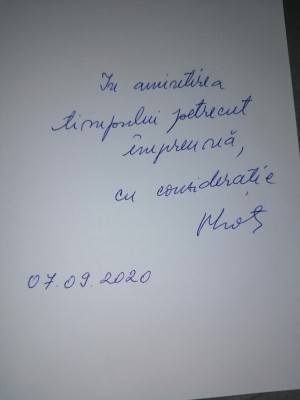 În amintirea
timpului petrecut
împreună,
cu considerație
07.09.2020